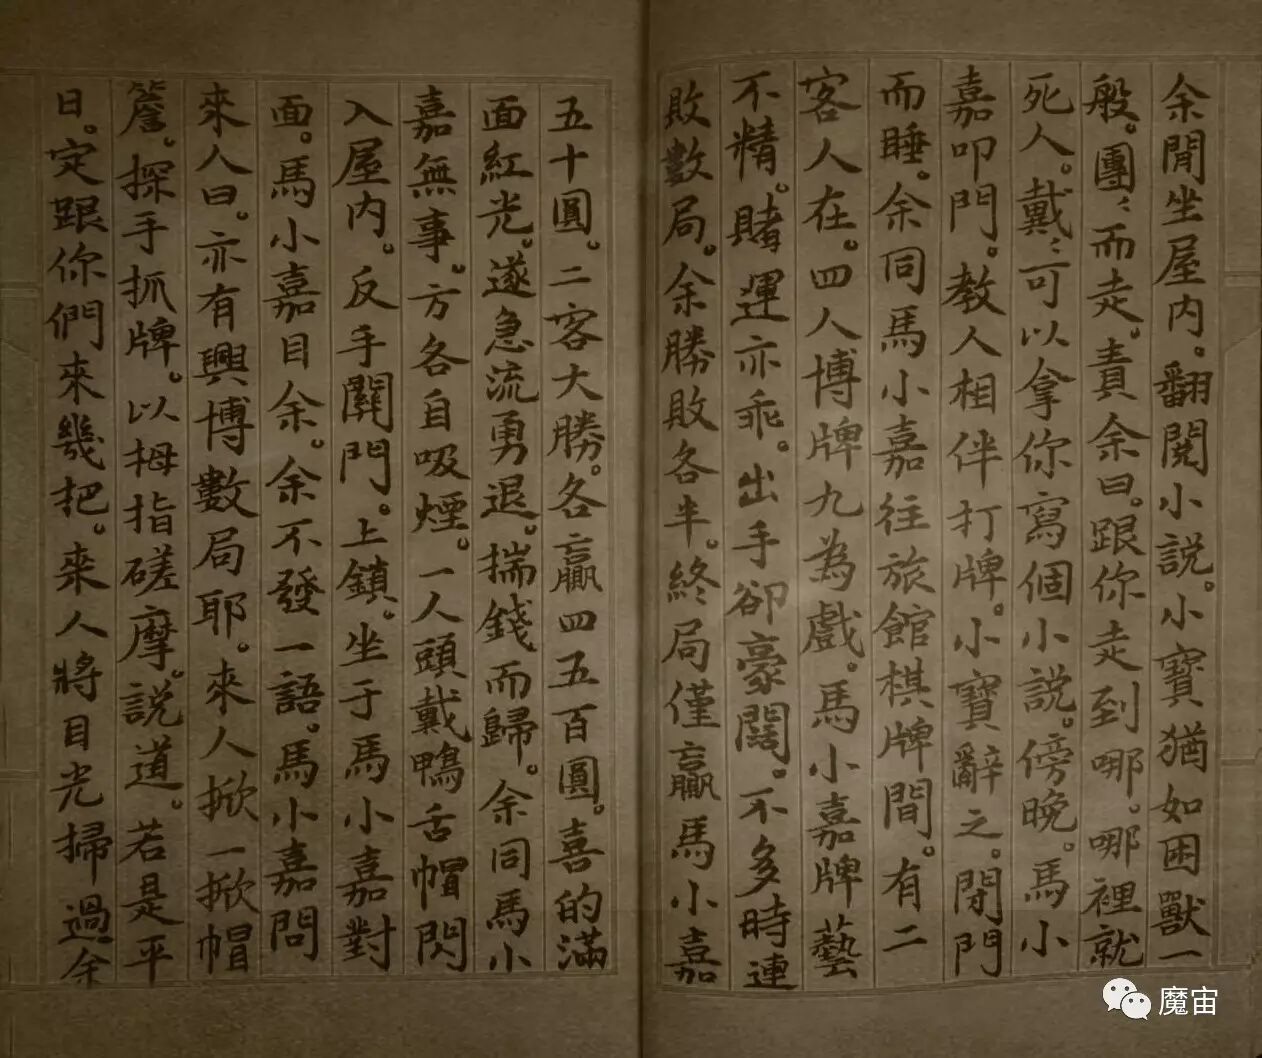 余閒坐屋內。翻閱小說。小寶猶如困獸一
般。團〻而走。責余曰。跟你走到哪。哪裡就
死人。戴〻可以拿你寫個小說。傍晚。馬小
嘉叩門。教人相伴打牌。小寶辭之。閉門
而睡。余同馬小嘉往旅館棋牌間。有二
客人在。四人博牌九為戲。馬小嘉牌藝
不精。賭運亦乖。出手卻豪闊。不多時連
敗數局。余勝敗各半。終局僅贏馬小嘉
五十圓。二客大勝。各贏四五百圓。喜的滿
面紅光。遂急流勇退。揣錢而歸。余同馬小
嘉無事。方各自吸煙。一人頭戴鴨舌帽閃
入屋內。反手關門。上鎖。坐于馬小嘉對
面。馬小嘉目余。余不發一語。馬小嘉問
來人曰。亦有興博數局耶。來人掀一掀帽
簷。探手抓牌。以拇指磋摩。說道。若是平
日。定跟你們來幾把。來人將目光掃過余
魔宙